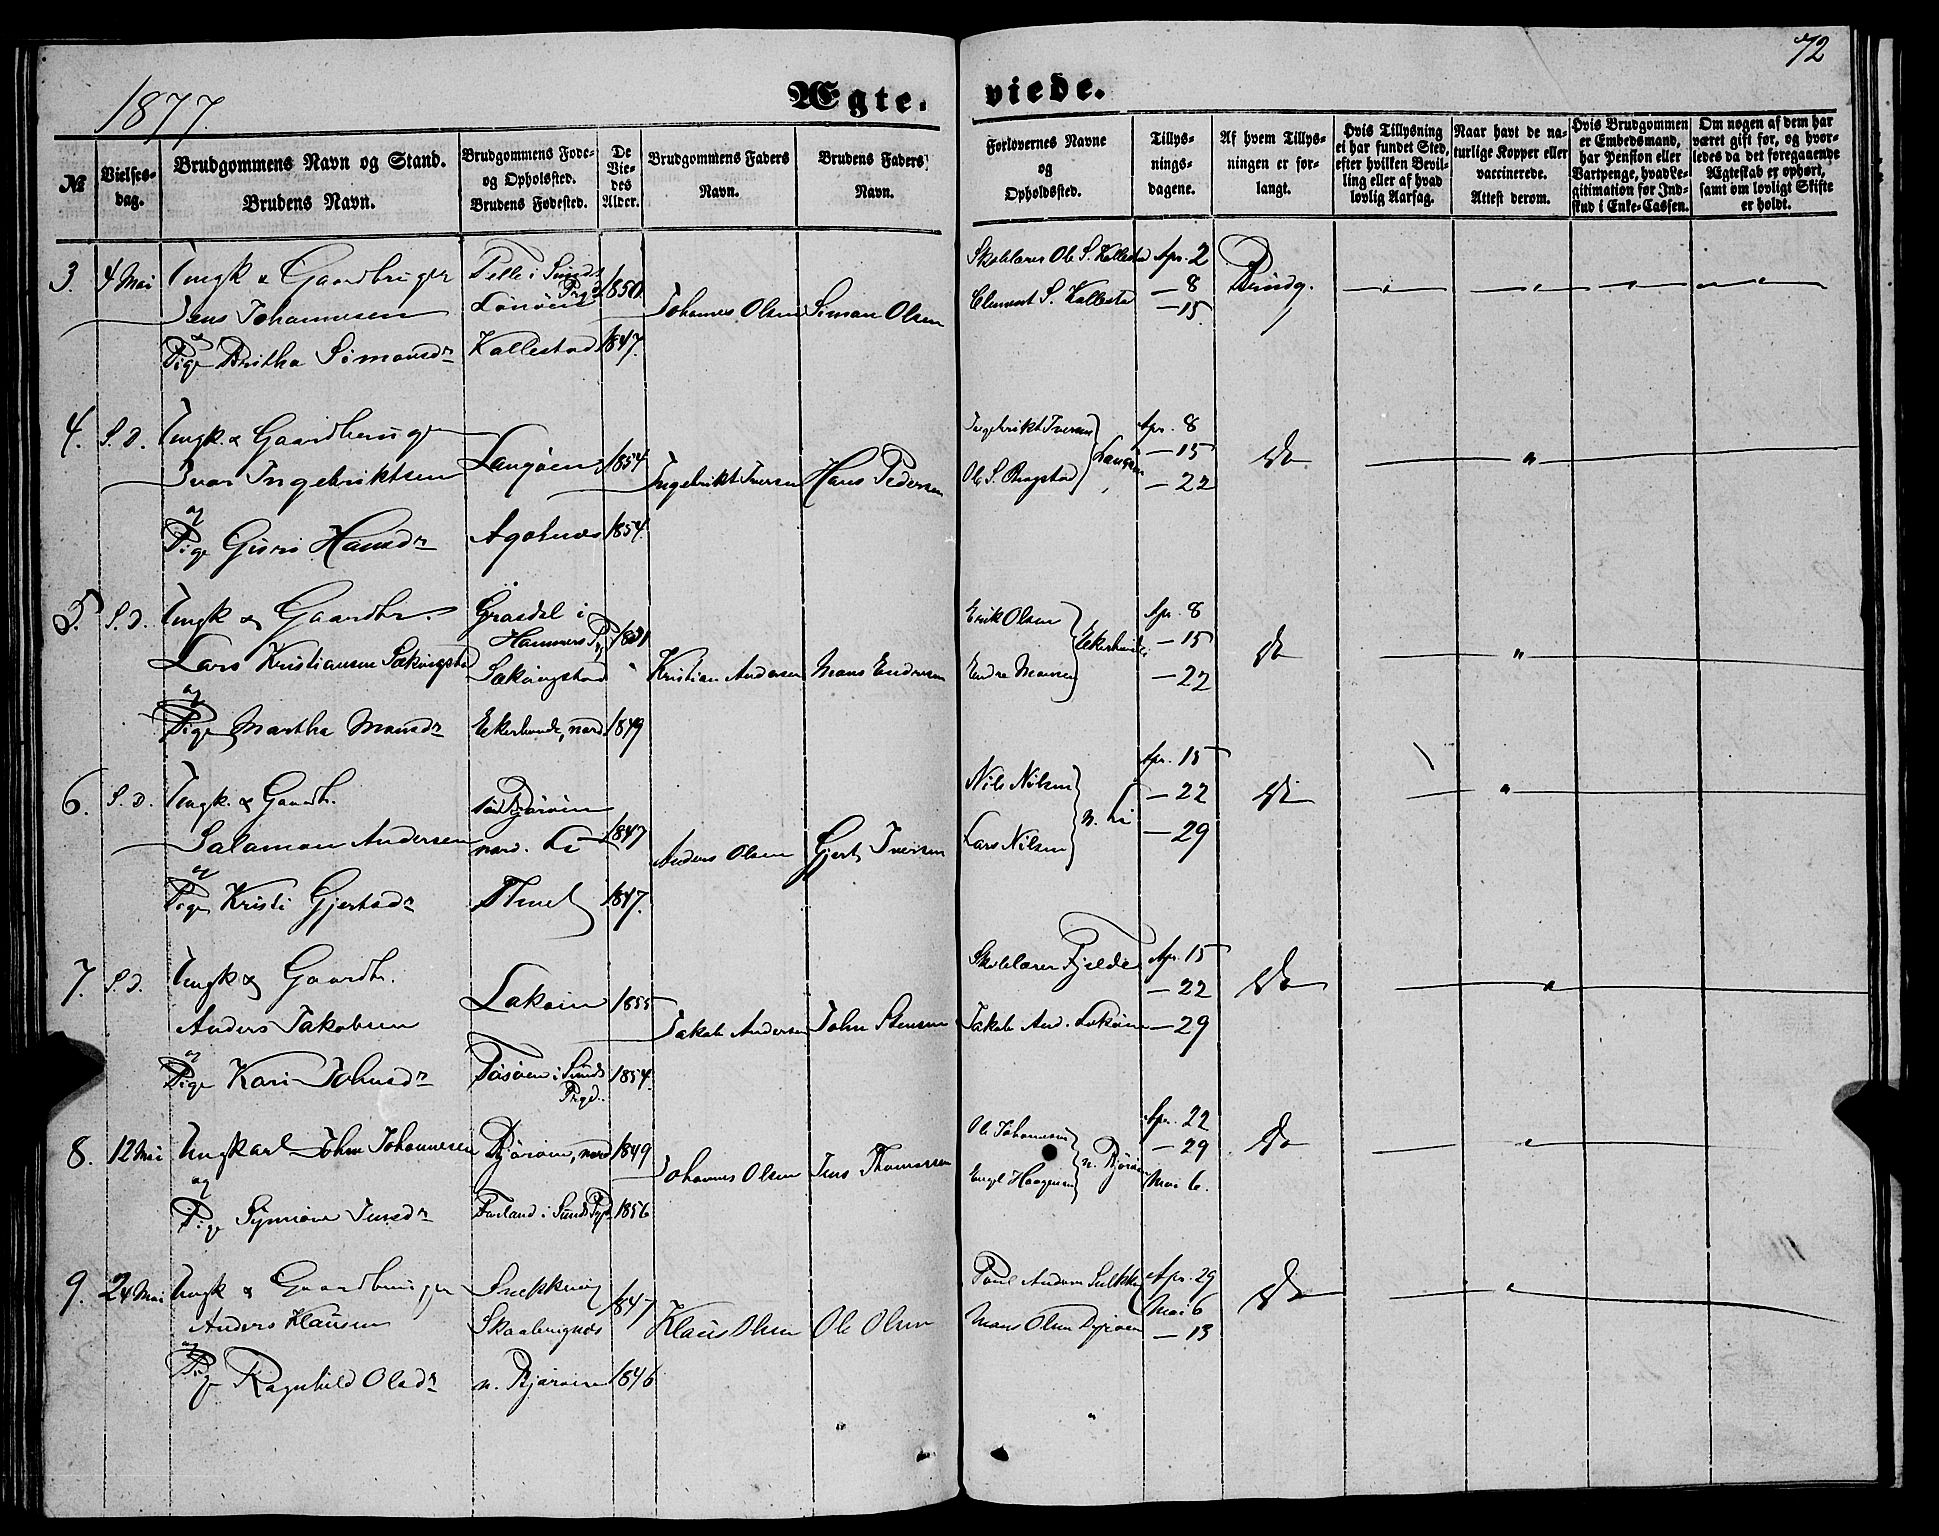 72
1877.
Ægte-
viede.
№
Vielses-
dag.
Brudgommens Navn og Stand.
Brudens Navn.
Brudgommens Føde-
og Opholdssted.
Brudens Fødested.
De
Vie-
des
Alder.
Brudgommens Faders
Navn.
Brudens Faders
Navn.
Forlovernes Navne
og
Opholdssted.
Tillys-
nings-
dagene.
Af hvem Tillys-
ningen er for-
langt.
Hvis Tillysning
ei har fundet Sted,
efter hvilken Bevil-
ling eller af hvad
lovlig Aarsag.
Naar havt de na-
turlige Kopper eller
vaccinerede.
Attest derom.
Hvis Brudgommen
er Embedsmand,
har Pension eller
Vartpenge, hvad Le-
gitimation for Ind-
skud i Enke-Cassen.
Om nogen af dem har
været gift før, og hvor-
ledes da det foregaaende
Ægteskab er ophørt,
samt om lovligt Skifte
er holdt.
3. 4 Mai Ungk & Gaardbruger Telle i Sunds Prgd 1850. Skolelærer Ole S. Kallestad Apr. 2 Brudg.
Jens Johannesen Lønøen Johannes Olsen Simon Olsen Clement S. Kallestad — 8
— 15.
& Pige Britha Simonsdr Kallestad 1847.
4. S. D. Ungk. & Gaardbruger Langøen 1854. Ingebrikt Iversen Langøen Apr. 8 Do
Ivar Ingebriktsen Ingebrikt Iversen Hans Pedersen Ole S. — 15
— 22
og
Pige Guri Hansdr Agotnes 1854.
5. S. D. Ungk & Gaardbr. Grasdal i Hammers P. 1851 Erik Olsen Ekerhovde Apr. 8 Do
Lars Kristiansen Sækingstad Sækingstad Kristian Andersen Mons Endresen Endre Monsen — 15
— 22
og
Pige Martha Monsdr Ekerhovde, nord 1849
6. S. D. Ungk. & Gaardb. Bjorøin 1847 Nils Nilsen n. Li Apr. 15 Do
Salamon Andersen nord. Li Anders Olsen Gjert Iversen Lars Nilsen — 22
— 29
og
Pige Kristi Gjertsdr 1847.
7. S. D. Ungk & Gaardb. Lokøin 1855 Skolelærer Fjelde Apr. 15 Do
Anders Jakobsen Jakob Andersen John Stensen Jakob And. Lokøin — 22
— 29
og
Pige Kari Johnsdr Tøsøen i Sunds Prgd. 1854.
8. 12 Mai Ungkarl John Johannesen Bjorøin, nord 1849 Johannes Olsen Jens Thomassen Ole Johannesen n. Bjorøin Apr. 22 Do
Engel Haagensen — 29
Mai 6.
og
Pige Synnøve Jensdr Forland i Sunds Pgd. 1856
9. 24 Mai Ungk & Gaardbruger Snekkevig 1847 Poul Andersen Apr. 29 Do
Anders Klausen Skaalevignes Klaus Olsen Ole Olsen Mons Olsen Mai 6
— 13
og
Pige Ragnhild Olsdr n. Bjorøin 1846